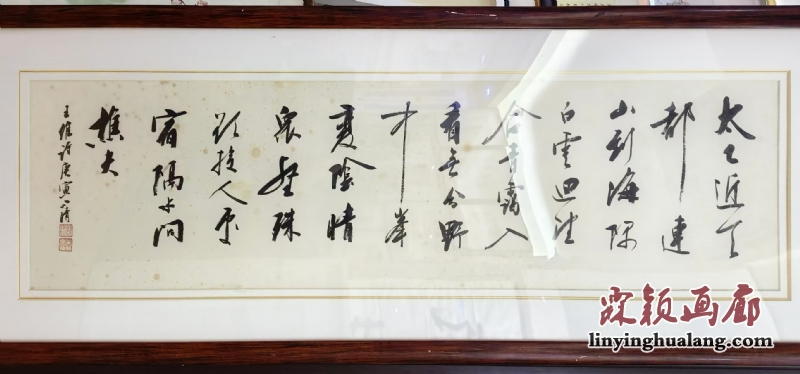 太乙近天
都連
山到海隅
白雲迴望
合青靄入
看無分野
中峯
變陰晴
眾壑殊
欲投人處
宿隔水問
樵夫
王維詩庚寅
霖颖画廊
linyinghualang.com